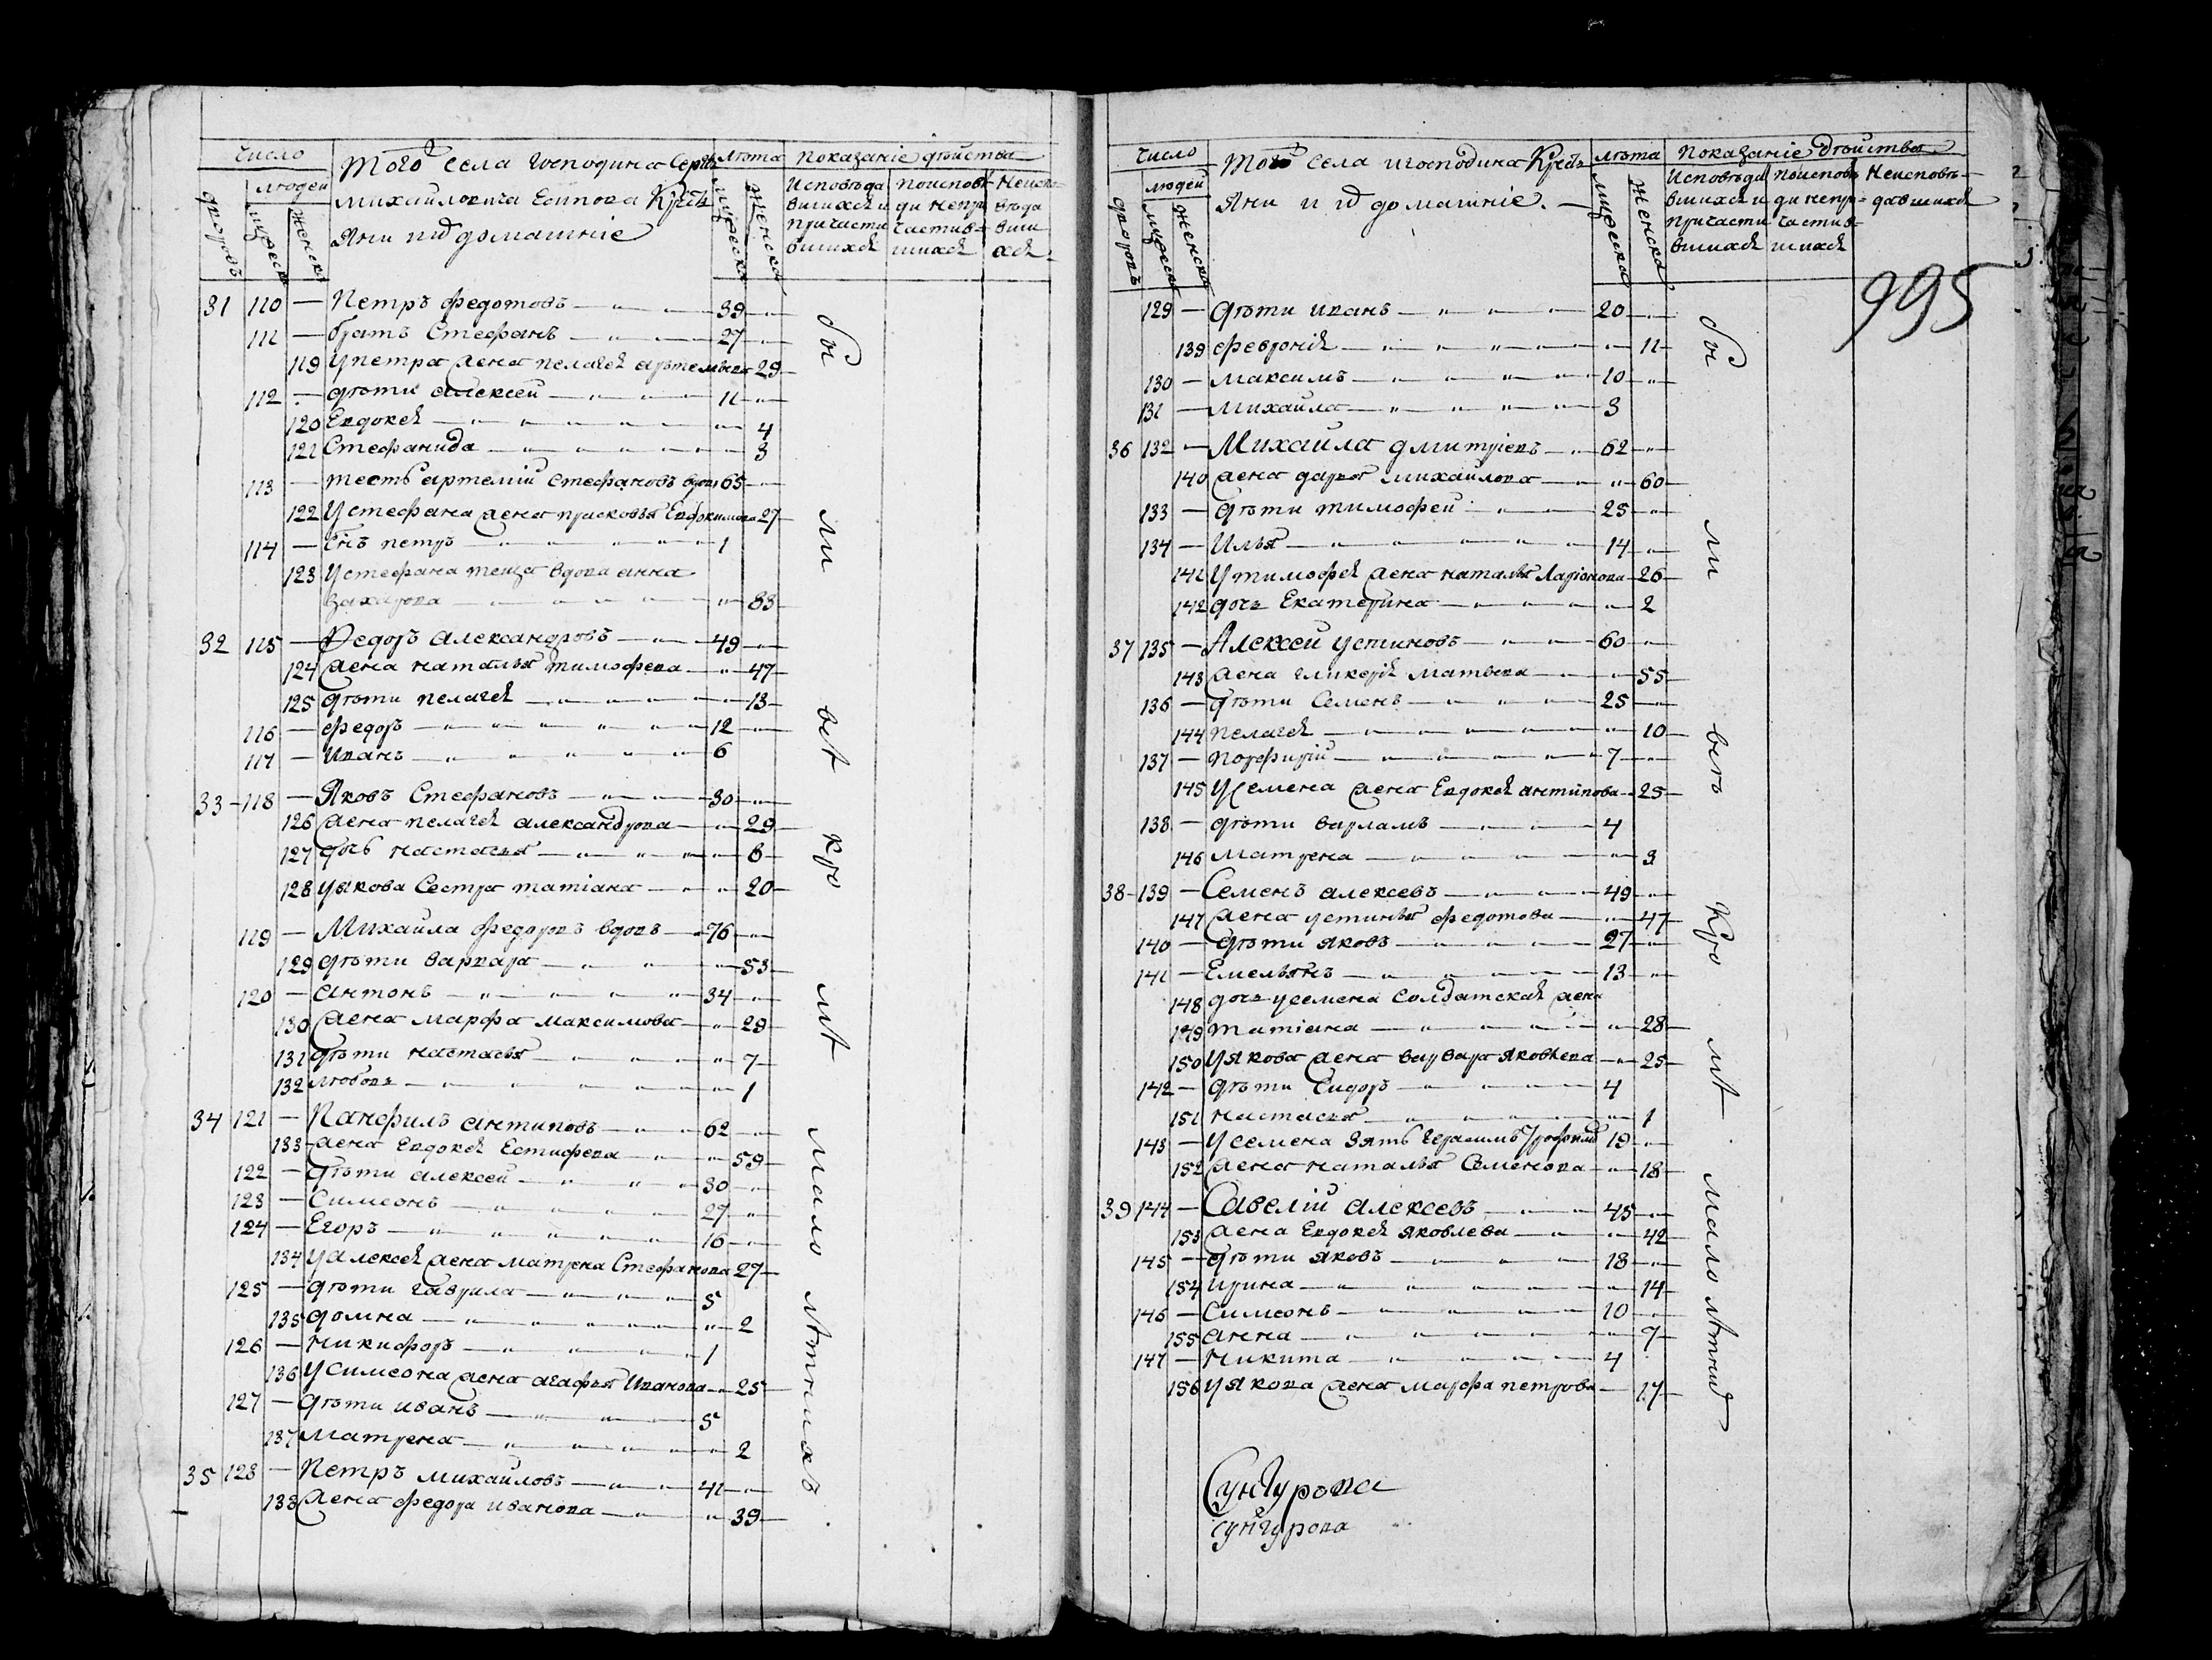 число
людей
дворовъ
мужеск
женска
Того села господина Сергѣ
михаиловича Есипова Крестъ
яни и ід домашніе
лѣта
мужеска
женска
показаніе дѣйства
Исповѣда
вшихся и
причасти
вшихся
поисповѣ
ди непри
частив-
шихся
Неиспо-
вѣда
вши
хся
31 110 — Петръ федотовъ 39
111 — братъ Стефанъ 27
119 у петра жена пелагея артемьева 29
112 — дѣти алексей 11
120 Евдокея 4
121 Стефанида 3
113 — тесть артемій Стефановъ вдовъ 65
122 У стефана жена прасковья Евдокимова 27
114 — снъ петръ 1
123 У стефана теща вдова анна
захарова 83
32 115 — Федоръ александровъ 49
124 жена наталья тимофева 47
125 дѣти пелагея 13
116 — федоръ 12
117 — иванъ 6
33 118 — Яковъ Стефановъ 30
126 жена пелагея александрова 29
127 дочь настасья 8
128 уякова сестра татіана 20
119 — Михаила федоровъ вдовъ 76
129 дѣти варвара 53
120 — антонъ 34
130 жена марфа максимова 29
131 дѣти настасья 7
132 любовь 1
34 121 — Панфилъ антиповъ 62
133 жена Евдокея Естифева 59
122 — дѣти алексей 30
123 — Симеонъ 27
124 — Егоръ 16
134 У алексея жена матрена Стефанова 27
125 — дѣти гаврила 5
135 домна 2
126 — никифоръ 1
136 У симеона жена агафья Иванова 25
127 — дѣти иванъ 5
137 матрена 2
35 128 — Петръ михаиловъ 41
138 жена федора иванова 39
бы
ли
вся
кро
мя
мало
лѣтнихъ
число
людей
дворовъ
мужеск
женска
Того села и господина Крестъ
яни и ід домашніе.
лѣта
мужеска
женска
показаніе дѣйства
Исповѣда
вшихся и
причасти
вшихся
поисповѣ
ди непри-
частив-
шихся
Неисповѣ-
давшихся
995
129 — дѣти иванъ 20
139 февронія 11
130 — максимъ 10
131 — михаила 3
36 132 — Михаила дмитріевъ 62
140 жена дарья михаилова 60
133 — дѣти тимофей 25
134 — Илья 14
141 У тимофея жена наталья Ларіонова 26
142 дочь Екатерина 2
37 135 — Алексей устиновъ 60
143 жена гликерія матвева 55
136 — дѣти Семенъ 25
144 пелагея 10
137 — порфирій 7
145 У семена жена Евдокея антипова 25
138 — дѣти варламъ 4
146 матрена 3
38 139 — Семенъ алексевъ 49
147 жена устинья федотова 47
140 — дѣти яковъ 27
141 — Емельянъ 13
148 дочь усемена солдатская жена
149 татіана 28
150 уякова жена варвара яковлева 25
142 — дѣти Сидоръ 4
151 настасья 1
143 — У семена зять герасимъ 19
152 жена наталья Семенова 18
39 144 — Савелій алексевъ 45
153 жена Евдокея яковлева 42
145 — дѣти яковъ 18
154 ирина 14
146 — Симеонъ 10
155 анна 7
147 — никита 4
156 уякова жена марфа петрова 17
бы
ли
всѣ
Кро
мя
мало
лѣтних
Сунгурова
сунгурова